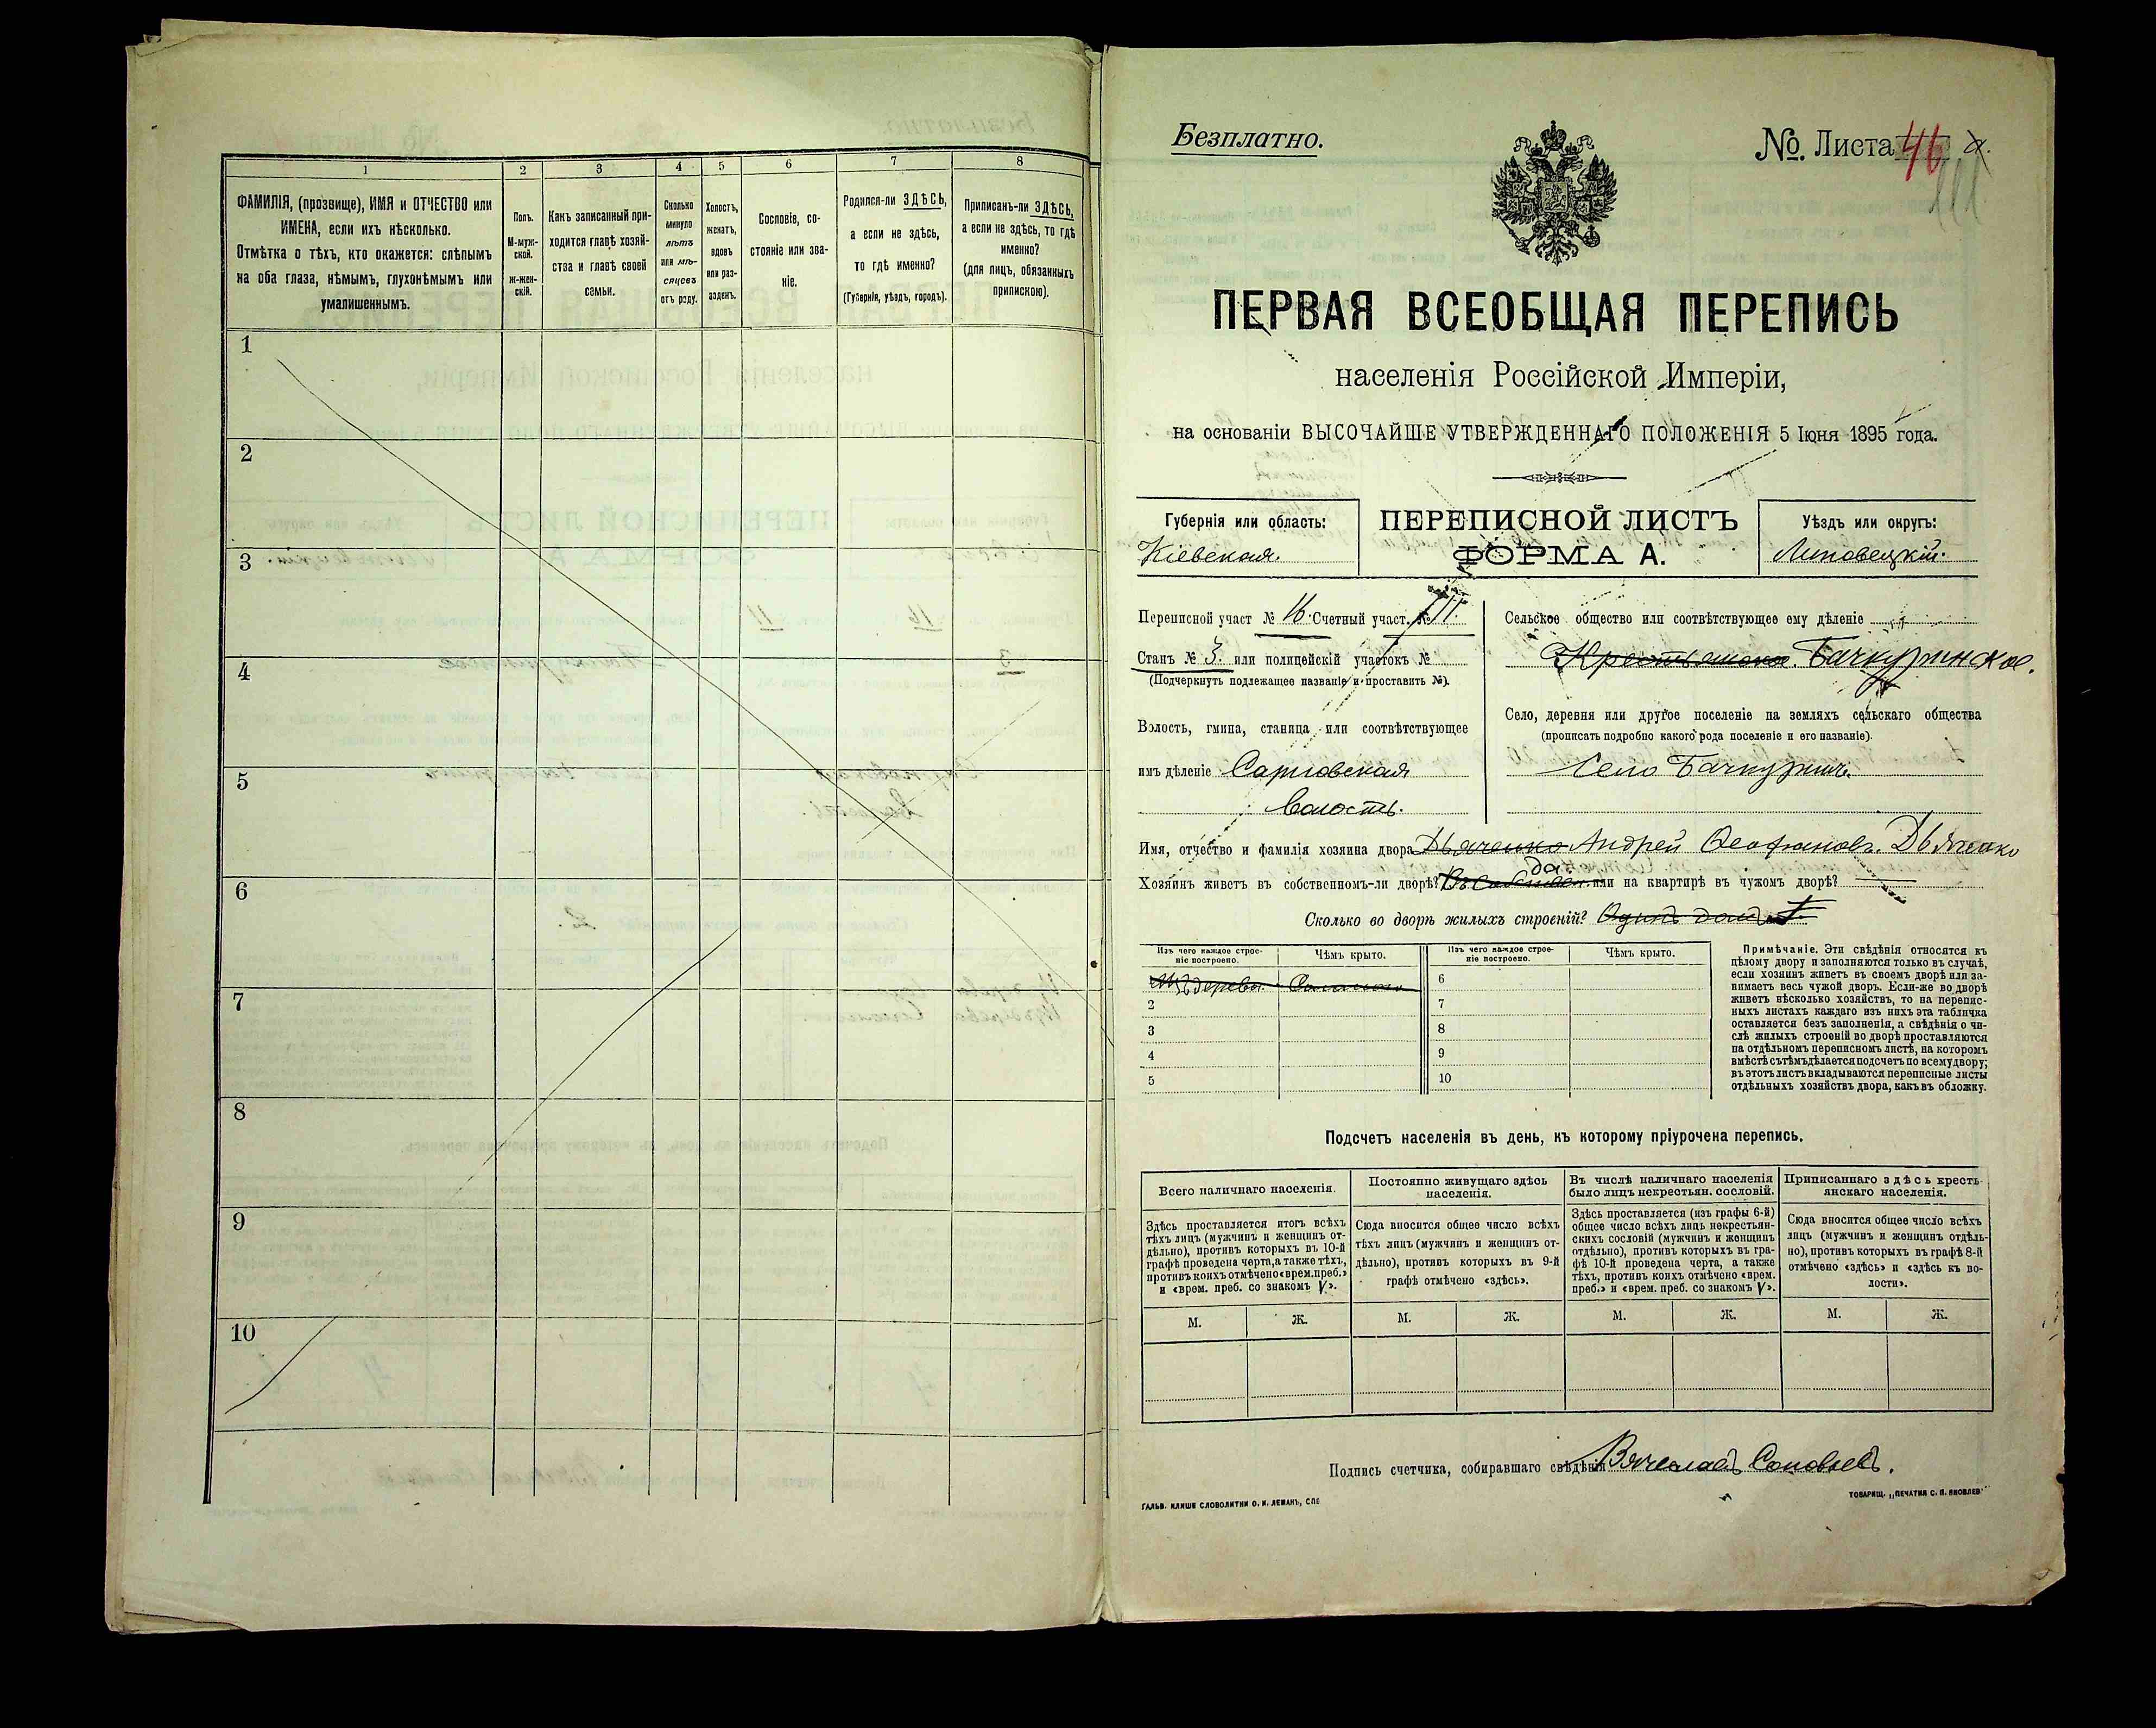 1
2
3
4
5
6
7
8
ФАМИЛІЯ, (прозвище), ИМЯ и ОТЧЕСТВО или
ИМЕНА, если ихъ нѣсколько.
Отмѣтка о тѣхъ, кто окажется: слѣпымъ
на оба глаза, нѣмымъ, глухонѣмымъ или
умалишеннымъ.
Полъ.
М-муж-
ской.
Ж-жен-
скій.
Какъ записанный при-
ходится главѣ хозяй-
ства и главѣ своей
семьи.
Сколько
минуло
лѣтъ
или мѣ-
сяцевъ
отъ роду.
Холостъ,
женатъ,
вдовъ
или раз-
веденъ.
Сословіе, со-
стояніе или зва-
ніе.
Родился-ли ЗДѢСЬ,
а если не здѣсь,
то гдѣ именно?
(Губернія, уѣздъ, городъ).
Приписанъ-ли ЗДѢСЬ,
а если не здѣсь, то гдѣ
именно?
(для лицъ, обязанныхъ
припискою).
1
2
3
4
5
6
7
8
9
10
Безплатно.
№. Листа 46
ПЕРВАЯ ВСЕОБЩАЯ ПЕРЕПИСЬ
населенія Россійской Имперіи,
на основаніи ВЫСОЧАЙШЕ УТВЕРЖДЕННАГО ПОЛОЖЕНІЯ 5 Іюня 1895 года.
Губернія или область:
Кіевская.
ПЕРЕПИСНОЙ ЛИСТЪ
ФОРМА А.
Уѣздъ или округъ:
Липовецкій.
Переписной участ № 16. Счетный участ. № III.
Станъ № 3. или полицейскій участокъ №
(Подчеркнуть подлежащее названіе и проставить №).
Волость, гмина, станица или соотвѣтствующее
имъ дѣленіе
волость.
Сельское общество или соотвѣтствующее ему дѣленіе
Крестьянское. Бачкуринское.
Село, деревня или другое поселеніе на земляхъ сельскаго общества
(прописать подробно какого рода поселеніе и его названіе).
Село Бачкуринъ.
Имя, отчество и фамилія хозяина двора Дьяченко Андрей Ѳеофановъ. Дьяченко
Хозяинъ живетъ въ собственномъ-ли дворѣ? да. или на квартирѣ въ чужомъ дворѣ?
Сколько во дворѣ жилыхъ строеній? Одинъ домъ
Изъ чего каждое строе-
ніе построено.
Чѣмъ крыто.
Изъ чего каждое строе-
ніе построено.
Чѣмъ крыто.
Изъ дерева. Соломою
2
3
4
5
6
7
8
9
10
Примѣчаніе. Эти свѣдѣнія относятся къ
цѣлому двору и заполняются только въ случаѣ,
если хозяинъ живетъ въ своемъ дворѣ или за-
нимаетъ весь чужой дворъ. Если-же во дворѣ
живетъ нѣсколько хозяйствъ, то на перепис-
ныхъ листахъ каждаго изъ нихъ эта табличка
оставляется безъ заполненія, а свѣдѣнія о чи-
слѣ жилыхъ строеній во дворѣ проставляются
на отдѣльномъ переписномъ листѣ, на которомъ
вмѣстѣ съ тѣмъ дѣлается подсчетъ по всему двору;
въ этотъ листъ вкладываются переписные листы
отдѣльныхъ хозяйствъ двора, какъ въ обложку.
Подсчетъ населенія въ день, къ которому пріурочена перепись.
Всего наличнаго населенія.
Здѣсь проставляется итогъ всѣхъ
тѣхъ лицъ (мужчинъ и женщинъ от-
дѣльно), противъ которыхъ въ 10-й
графѣ проведена черта, а также тѣхъ,
противъ коихъ отмѣчено «врем. преб.»
и «врем. преб. со знакомъ V».
Постоянно живущаго здѣсь
населенія.
Сюда вносится общее число всѣхъ
тѣхъ лицъ (мужчинъ и женщинъ от-
дѣльно), противъ которыхъ въ 9-й
графѣ отмѣчено «здѣсь».
Въ числѣ наличнаго населенія
было лицъ некрестьян. сословій.
Здѣсь проставляется (изъ графы 6-й)
общее число всѣхъ лицъ некрестьян-
скихъ сословій (мужчинъ и женщинъ
отдѣльно), противъ которыхъ въ гра-
фѣ 10-й проведена черта, а также
тѣхъ, противъ коихъ отмѣчено «врем.
преб.» и «врем. преб. со знакомъ V».
Приписаннаго здѣсь кресть-
янскаго населенія.
Сюда вносится общее число всѣхъ
лицъ (мужчинъ и женщинъ отдѣль-
но), противъ которыхъ въ графѣ 8-й
отмѣчено «здѣсь» и «здѣсь къ во-
лости».
М. Ж. М. Ж. М. Ж. М. Ж.
Подпись счетчика, собиравшаго свѣдѣнія Вячеславъ Соловьевъ.
ГАЛЬВ. КЛИШЕ СЛОВОЛИТНИ О. И. ЛЕМАНЪ, СПБ
ТОВАРИЩ. „ПЕЧАТНЯ С. П. ЯКОВЛЕВ